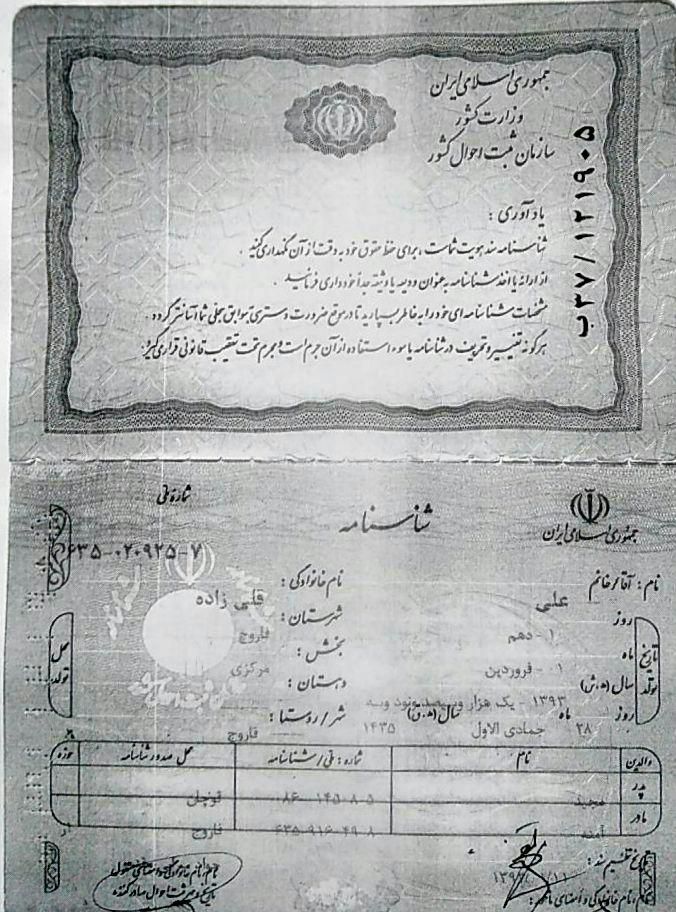 جمهوری اسلامی ایران
وزارت کشور
سازمان ثبت احوال کشور
ب۳۷/۱۲۱۹۰۵
یادآوری :
شناسنامه سند هویت شماست ، برای حفظ حقوق خود به دقت از آن نگهداری کنید .
از ارائه یا اخذ شناسنامه به عنوان ودیعه یا وثیقه جداً خودداری فرمائید .
مشخصات شناسنامه ای خود را به خاطر بسپارید تا در موقع ضرورت دسترسی به سوابق سجلی شما آسانتر گردد .
هرگونه تغییر و تحریف در شناسنامه یا سوء استفاده از آن جرم است و مجرم تحت تعقیب قانونی قرار می گیرد .
جمهوری اسلامی ایران
شناسنامه
شماره ملی
۶۳۵-۰۲۰۹۲۵-۷
نام : آقا/خانم
علی
نام خانوادگی :
قلی زاده
تاریخ تولد
روز
۱ - دهم
ماه
۰۱ - فروردین
سال (ه.ش)
۱۳۹۳ - یک هزار و سیصد و نود و سه
روز
۲۸
ماه
جمادی الاول
سال (ه.ق)
۱۴۳۵
محل تولد
شهرستان :
فاروج
بخش :
مرکزی
دهستان :
شهر / روستا :
فاروج
والدین
نام
شماره : ملی / شناسنامه
محل صدور شناسنامه
حوزه
پدر
مجید
قوچان
مادر
آمنه
فاروج
تاریخ تنظیم سند :
نام، نام خانوادگی و امضای مامور :